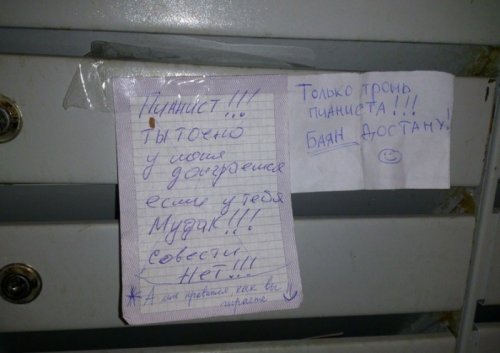 Пианист!!!
ты точно
у меня
доиграешся
если у тебя
Мудак!!!
Совести
Нет!!!
* А мне нравится как вы
играете
Только тронь
пианиста!!!
Баян достану!